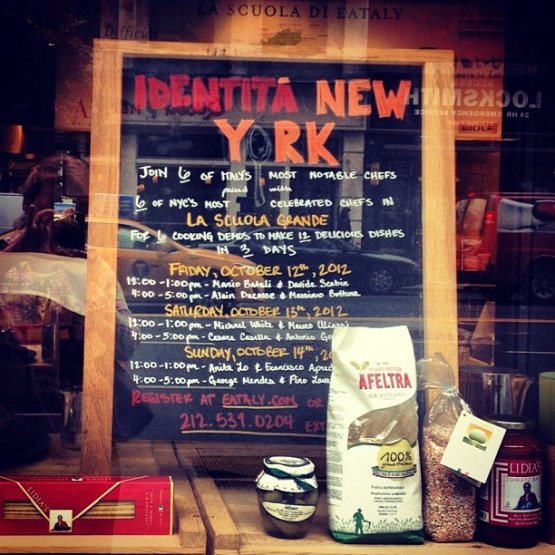 LA SCUOLA DI EATALY
Difficili
LOCKSMITH
24 HR EMERGENCY SERVICE
IDENTITÁ NEW
YORK
JOIN 6 OF ITALY'S MOST NOTABLE CHEFS
paired with
6 OF NYC'S MOST CELEBRATED CHEFS IN
LA SCUOLA GRANDE
FOR 6 COOKING DEMOS TO MAKE 12 DELICIOUS DISHES
IN 3 DAYS
FRIDAY, OCTOBER 12TH, 2012
12:00 - 1:00pm - Mario Batali & Davide Scabin
4:00 - 5:00pm - Alain Ducasse & Massimo Bottura
SATURDAY, OCTOBER 13TH, 2012
12:00 - 1:00pm - Michael White & Mauro Uliassi
4:00 - 5:00pm - Cesare Casella & Antonio
SUNDAY, OCTOBER 14TH,
12:00 - 1:00pm - Anita Lo & Francisco
4:00 - 5:00pm - George Mendes & Pino
REGISTER AT EATALY.COM OR
212.539.0204 EXT
AFELTRA
GRAGNANO
100%
LIDIA'S
LIDIA'S
TOMATO